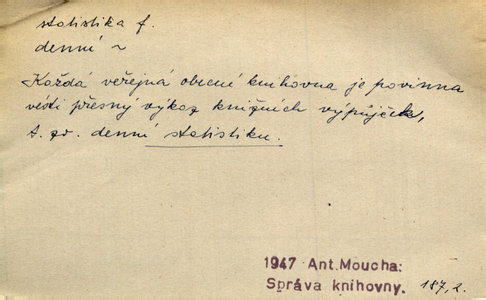 statistika f.
denní ~
Každá veřejná obecní knihovna je povinna
vésti přesný výkaz knižních výpůjček,
t. zv. denní statistiku.
1947 Ant. Moucha:
Správa knihovny. 187, 2.